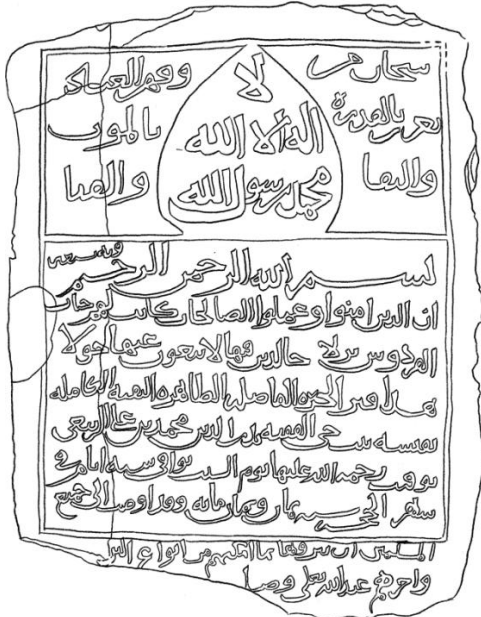 سبحان من
تعزز بالقدرة
والبقا
لا
اله الا الله
محمد رسول الله
وقهر العباد
بالموت
والفنا
بسم الله الرحمن الرحيم وبه نستعين
ان الذين امنوا وعملوا الصالحات كانت لهم جنات
الفردوس نزلا خالدين فيها لا يبغون عنها حولا
هذا قبر الحرة الفاضلة الطاهرة الكاملة
نفيسة بنت الفقيه بدر الدين محمد بن علي
توفيت رحمة الله عليها يوم السبت ستة ايام في
شهر الحجة سنة ثمان وثمان مائة وقد اوصت الى جميع
المسلمين ان بما امكنهم من انواع البر
واجرهم عند الله تعلى